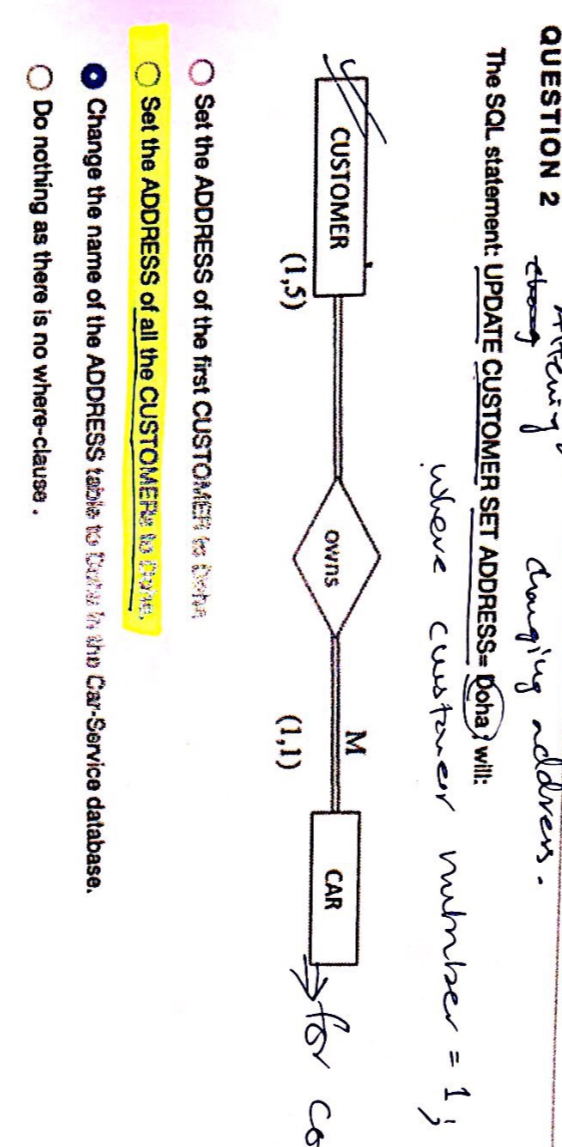 QUESTION 2
changing address.
The SQL statement: UPDATE CUSTOMER SET ADDRESS= Doha; will:
where customer number = 1;
CUSTOMER
owns
M
CAR
for
(1,5)
(1,1)
Set the ADDRESS of the first CUSTOMER to Doha
Set the ADDRESS of all the CUSTOMERs to Doha.
Change the name of the ADDRESS table to Doha in the Car-Service database.
Do nothing as there is no where-clause.